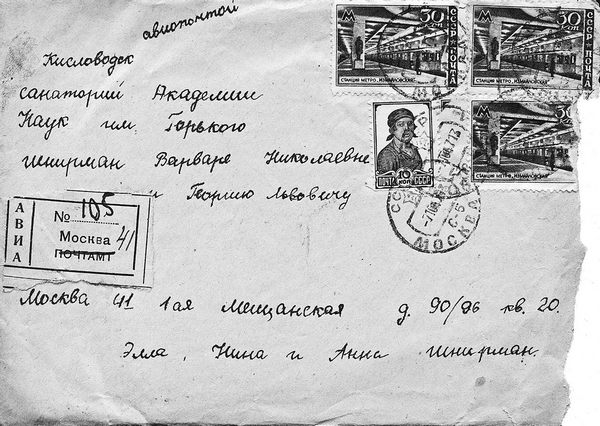 авиапочтой
Кисловодск
санаторий Академии
Наук им. Горького
Шнирман Варваре Николаевне
и Георгию Львовичу
АВИА
№ 105
Москва 41
ПОЧТАМТ
Москва 41 1ая Мещанская д. 90/96 кв. 20.
Элла, Нина и Анна Шнирман.
М 30 КОП СССР ПОЧТА
СТАНЦИЯ МЕТРО „ИЗМАЙЛОВСКАЯ"
М 30 КОП СССР ПОЧТА
СТАНЦИЯ МЕТРО „ИЗМАЙЛОВСКАЯ"
30
СТАНЦИЯ МЕТРО „ИЗМАЙЛОВСКАЯ"
ПОЧТА 10 КОП СССР
МОСКВА